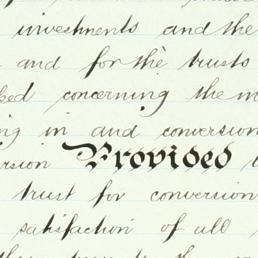 investments and the
and for the trusts
ked concerning the m
ng in and conversion
rsion Provided
trust for conversion
satisfaction of all